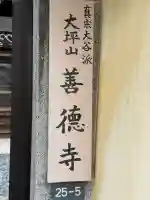 真宗大谷派
大坪山
善德寺
25-5